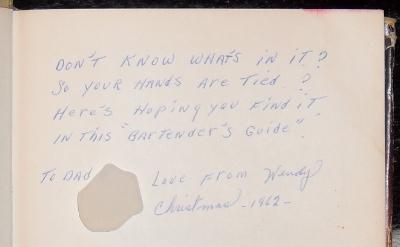 DON'T KNOW WHAT'S IN IT?
SO YOUR HANDS ARE TIED?
HERE'S HOPING YOU FIND IT
IN THIS "BARTENDER'S GUIDE".
TO DAD
LOVE FROM Wendy
Christmas -1962-